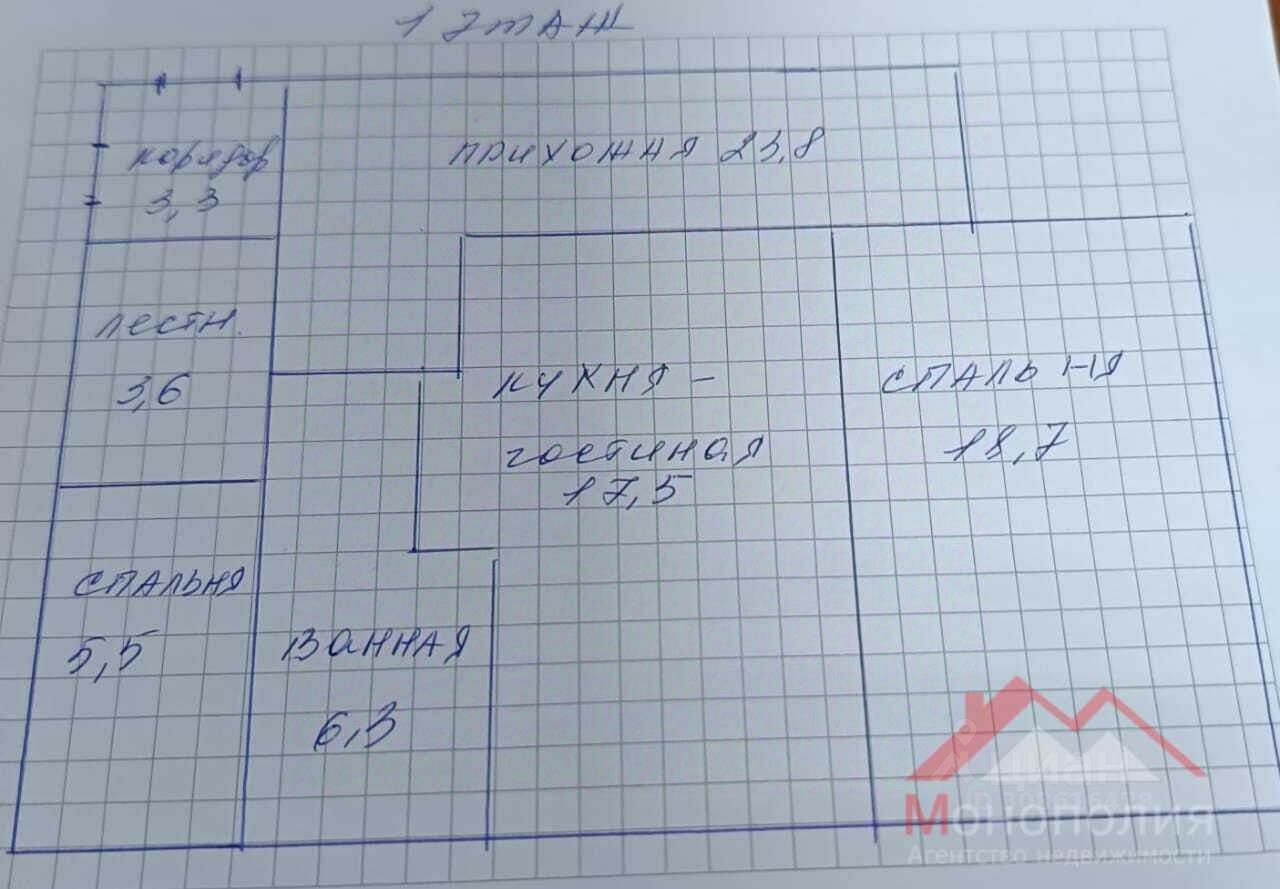 1 этаж
коридор
3,3
прихожня 23,8
лестн.
3,6
кухня -
гостиная
17,5
спальня
18,7
спальня
5,5
ванная
6,3
циан
Монополия
Агентство недвижимости